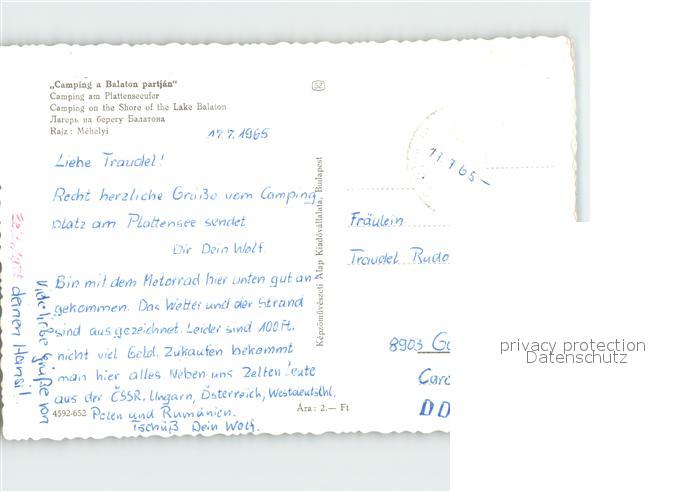 „Camping a Balaton partján“
Camping am Plattenseeufer
Camping on the Shore of the Lake Balaton
Лагерь на берегу Балатона
Rajz: Méhelyi
17.7.1965
Liebe Traudel!
Recht herzliche Grüße vom Camping
platz am Plattensee sendet
Dir Dein Wolf.
Bin mit dem Motorrad hier unten gut an
gekommen. Das Wetter und der Strand
sind ausgezeichnet. Leider sind 100 Ft.
nicht viel Geld. Zukaufen bekommt
man hier alles. Neben uns Zelten Leute
aus der ČSSR, Ungarn, Österreich, Westdeutschl.
Polen und Rumänien.
Tschüß Dein Wolf.
Viele liebe Grüße von
deinen Hansi!
4592-652
Ára: 2.— Ft
Képzőművészeti Alap Kiadóvállalata, Budapest
17.7.65-
Fräulein
Traudel Rudo
8903 Gö
Caro
DD
privacy protection
Datenschutz